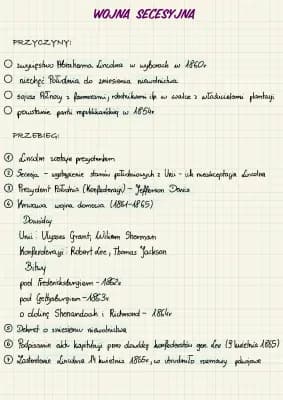 WOJNA SECESYJNA
PRZYCZYNY:
zwycięstwo Abrahama Lincolna w wyborach w 1860r
niechęć Południa do zniesienia niewolnictwa
sojusz Północy z farmerami, robotnikami itp w walce z właścicielami plantacji
powstanie partii republikańskiej w 1854r
PRZEBIEG:
① Lincoln zostaje prezydentem
② Secesja - wystąpienie stanów południowych z Unii - nieakceptacja Lincolna
③ Prezydent Południa (Konfederacji) - Jefferson Davis
④ Krwawa wojna domowa (1861-1865)
Dowódcy
Unii: Ulysses Grant, William Sherman
Konfederacji: Robert Lee, Thomas Jackson
Bitwy
pod Fredericksburgiem - 1862r
pod Gettysburgiem - 1863r
o dolinę Shenandoah i Richmond - 1864r
⑤ Dekret o zniesieniu niewolnictwa
⑥ Podpisanie aktu kapitulacji przez dowódcę konfederatów gen. Lee (9 kwietnia 1865)
⑦ Zastrzelenie Lincolna 14 kwietnia 1865r, co utrudniło rozmowy pokojowe